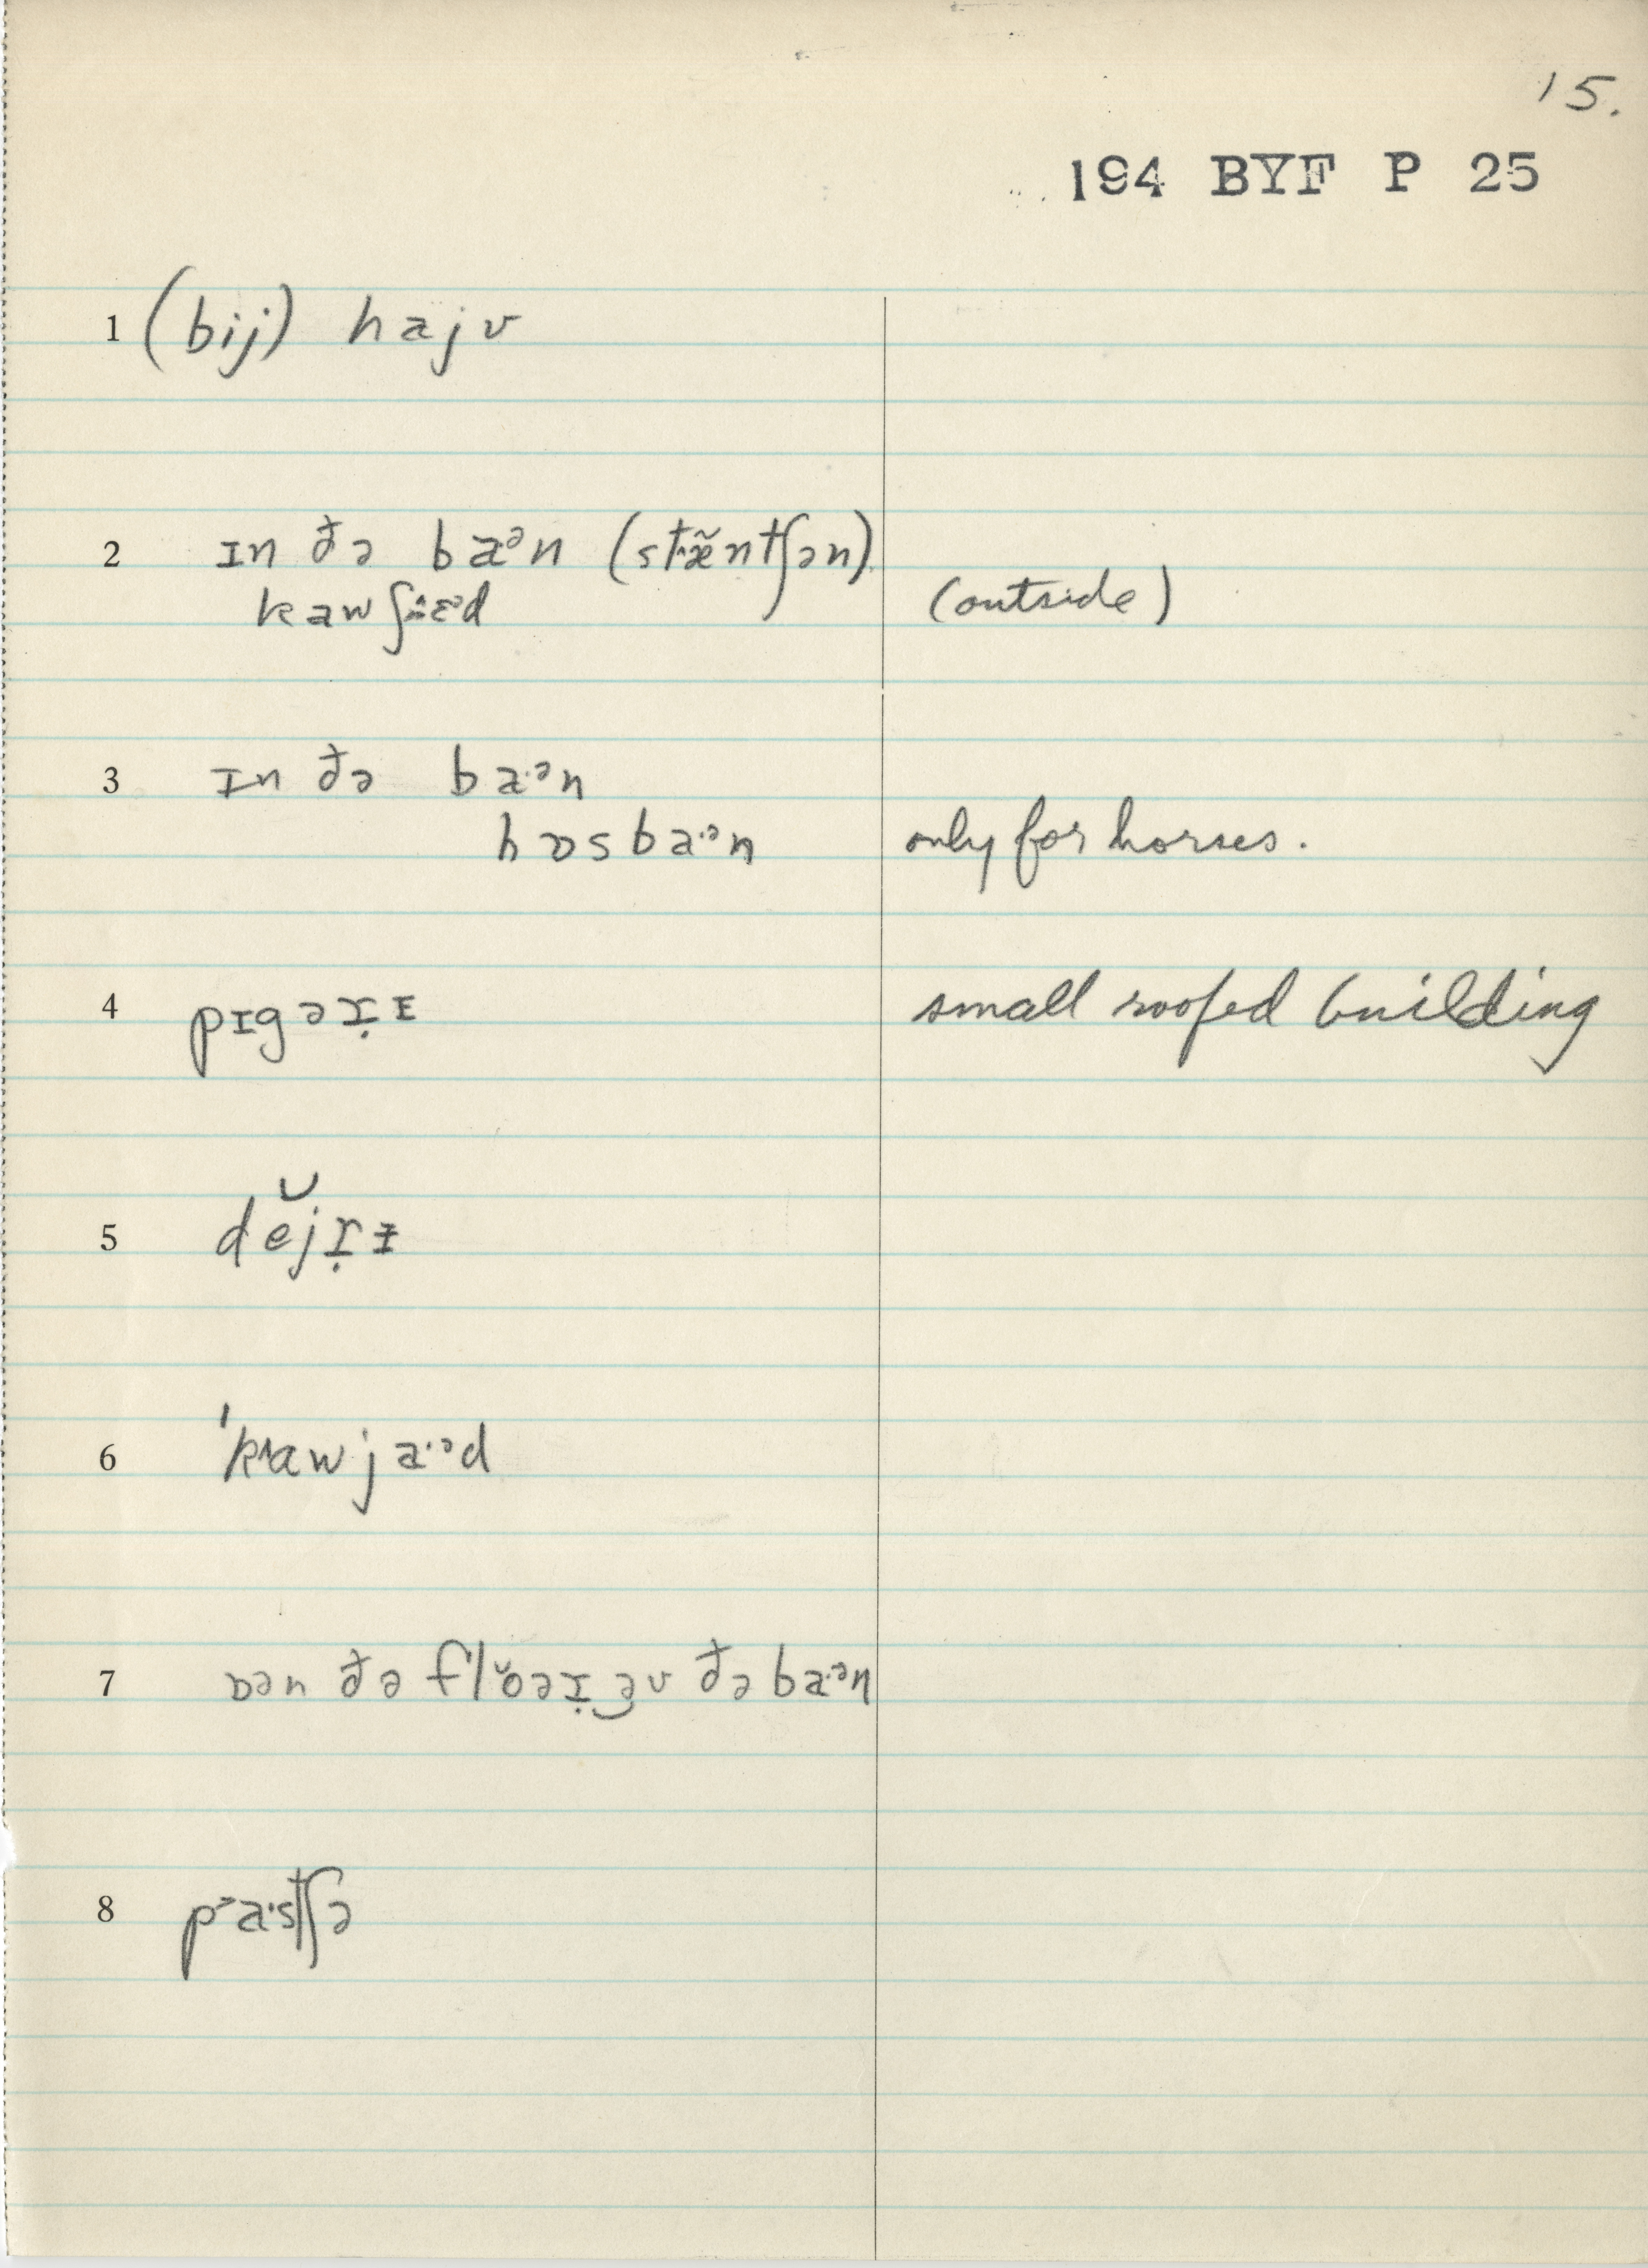 15.
194 BYF P 25
1 (bij) hajv
2 ɪn ðə baᵊn (stæ̃ntʃən)
kaw ʃɛᵊd (outside)
3 ɪn ðə ba·ᵊn
hɒsba·ᵊn only for horses.
4 pɪgəɪ̣ɪ small roofed building
5 dĕjɪ̣ɨ
6 ˈkawja·ᵊd
7 ɒən ðə flŏəɪ̣ əv ðə ba·ᵊn
8 pa·stʃə